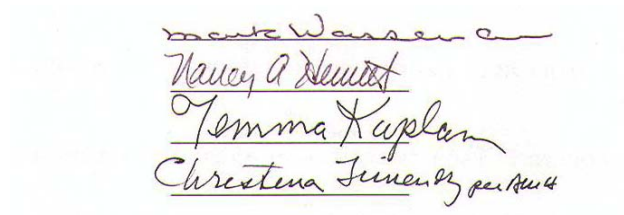 Mark Wasserman
Nancy A Hewitt
Temma Kaplan
Christina Jimenez per NAH